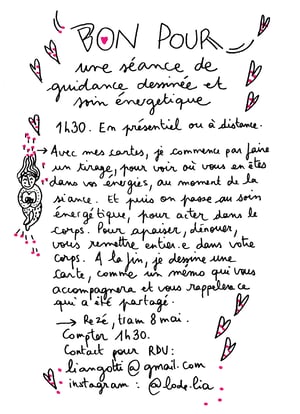 BON POUR
une séance de
guidance dessinée et
soin énergetique
1h30. En présentiel ou à distance.
→ Avec mes cartes, je commence par faire
un tirage, pour voir où vous en êtes
dans vos énergies, au moment de la
séance. Et puis on passe au soin
énergétique, pour acter dans le
corps. Pour apaiser, dénouer,
vous remettre entier.e dans votre
corps. A la fin, je dessine une
carte, comme un mémo qui vous
accompagnera et vous rappellera ce
qui a été partagé.
→ Rezé, tram 8 mai.
Compter 1h30.
Contact pour RDV:
liangotti@gmail.com
instagram: @lode.lia